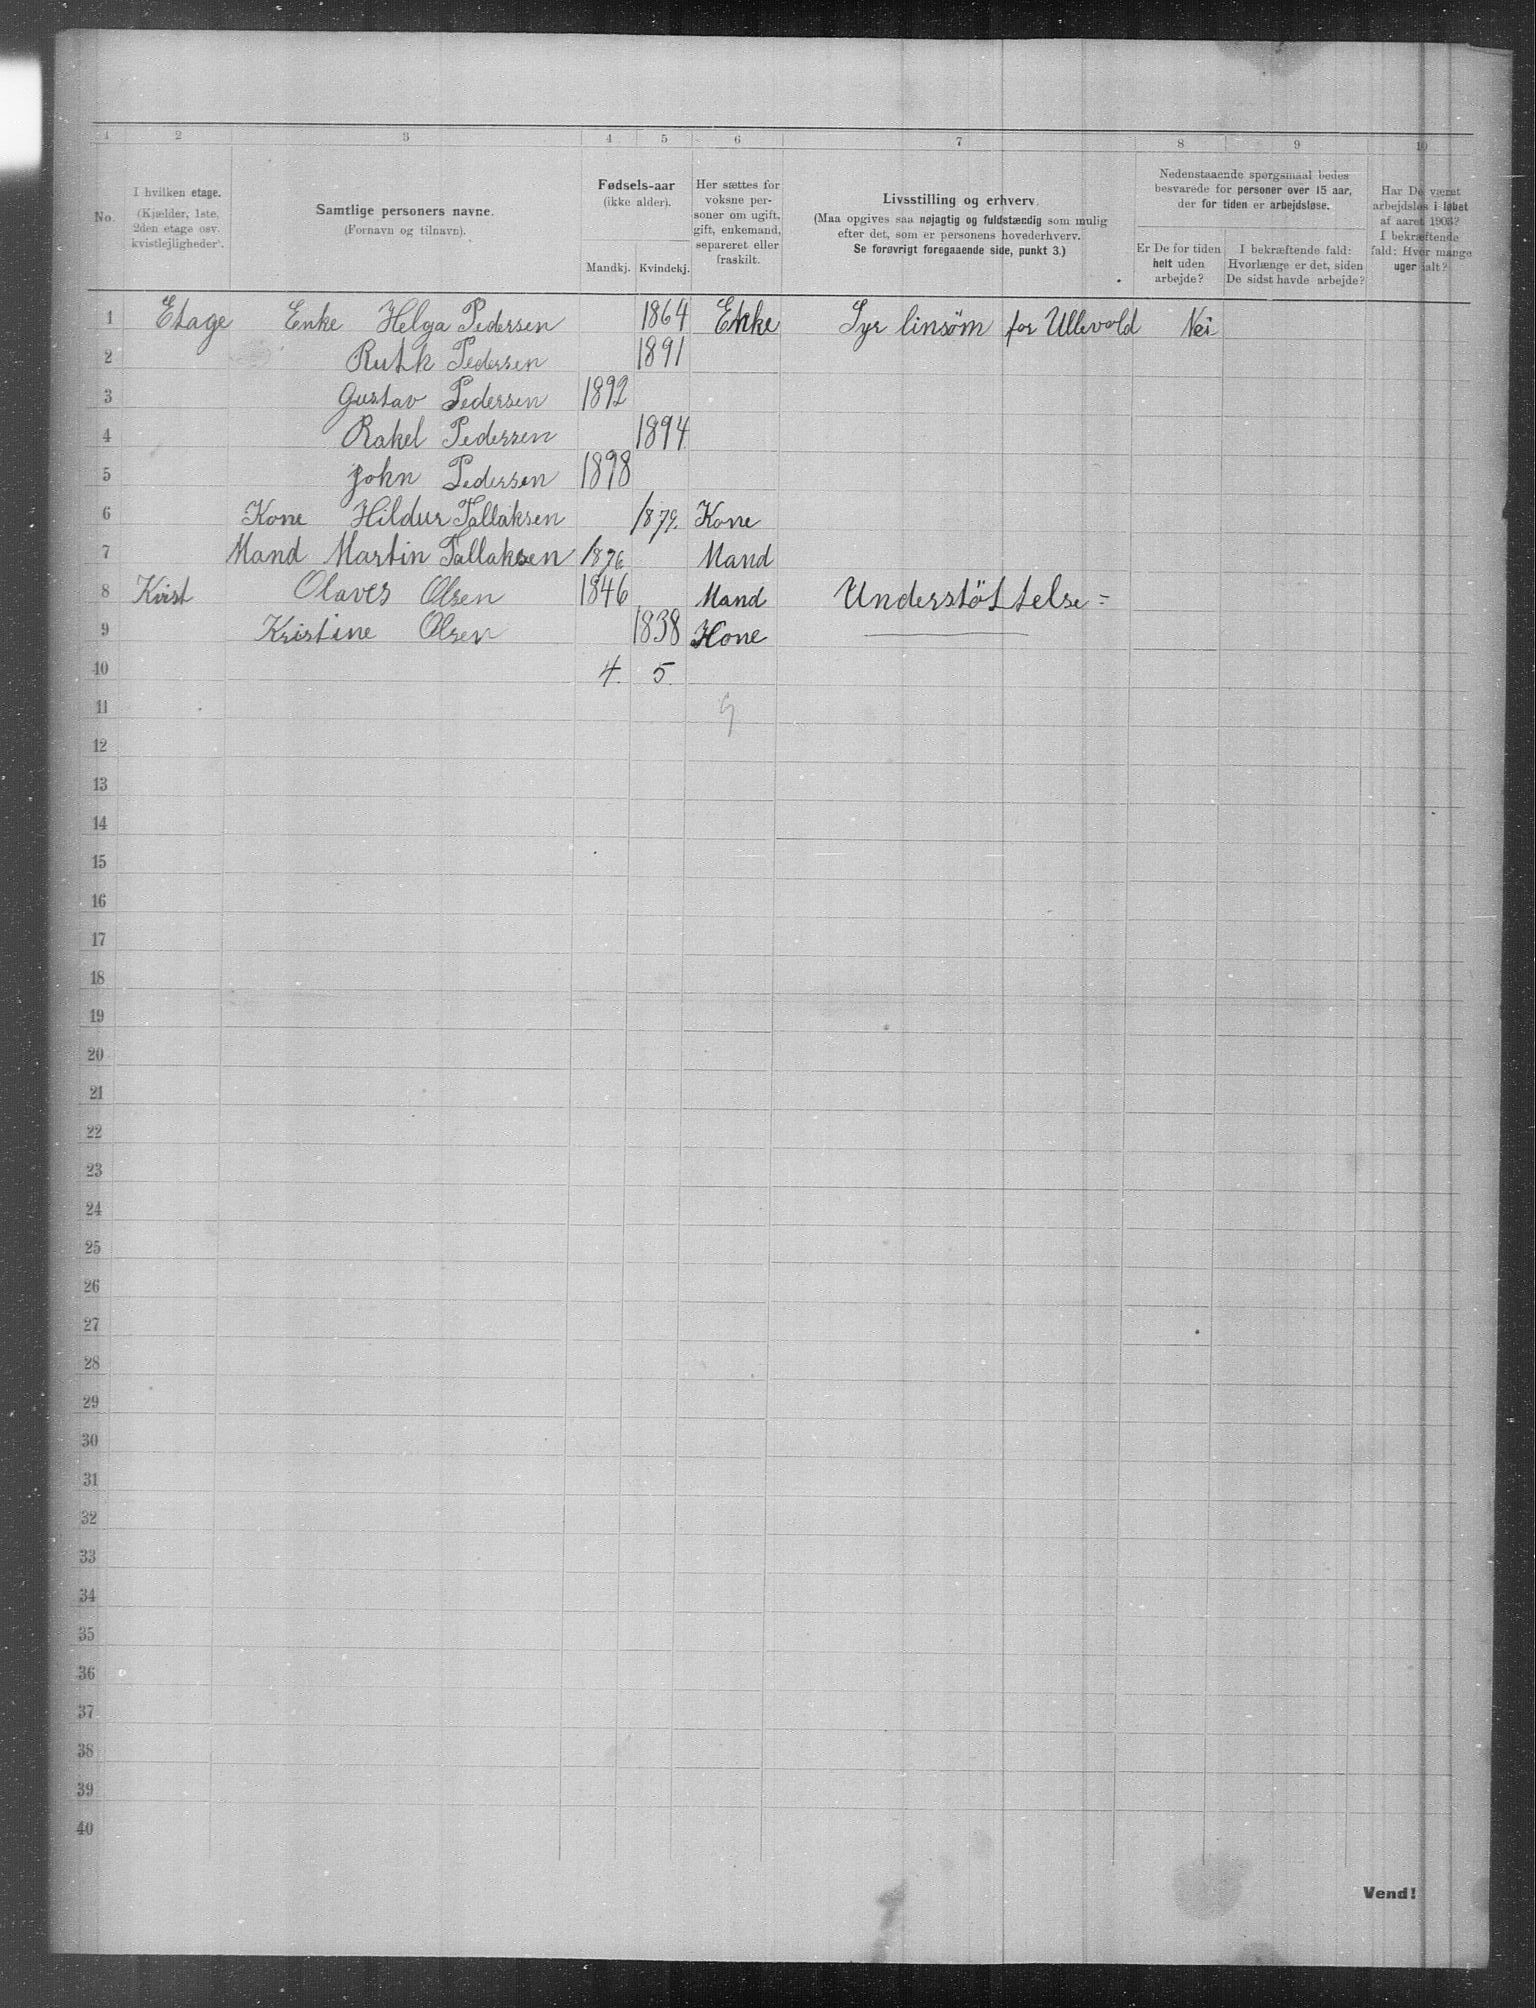 1 2 3 4 5 6 7 8 9 10
No.
I hvilken etage.
(Kjælder, 1ste,
2den etage osv.
kvistlejligheder).
Samtlige personers navne.
(Fornavn og tilnavn).
Fødsels-aar
(ikke alder).
Mandkj. Kvindekj.
Her sættes for
voksne per-
soner om ugift,
gift, enkemand,
separeret eller
fraskilt.
Livsstilling og erhverv.
(Maa opgives saa nøjagtig og fuldstændig som mulig
efter det, som er personens hovederhverv.
Se forøvrigt foregaaende side, punkt 3.)
Nedenstaaende spørgsmaal bedes
besvarede for personer over 15 aar,
der for tiden er arbejdsløse.
Er De for tiden
helt uden
arbejde?
I bekræftende fald:
Hvorlænge er det, siden
De sidst havde arbejde?
Har De været
arbejdsløs i løbet
af aaret 1903?
I bekræftende
fald: Hvor mange
uger ialt?
1 Etage Enke Helga Pedersen 1864 Enke Syr linsøm for Ullevold Nei
2 Ruth Pedersen 1891
3 Gustav Pedersen 1892
4 Rakel Pedersen 1894
5 John Pedersen 1898
6 Kone Hildur Tallaksen 1879. Kone
7 Mand Martin Tallaksen 1876 Mand
8 Kvist Olaves Olsen 1846 Mand Understöttelse =
9 Kristine Olsen 1838 Kone
10 4. 5.
11 9
12
13
14
15
16
17
18
19
20
21
22
23
24
25
26
27
28
29
30
31
32
33
34
35
36
37
38
39
40
Vend!